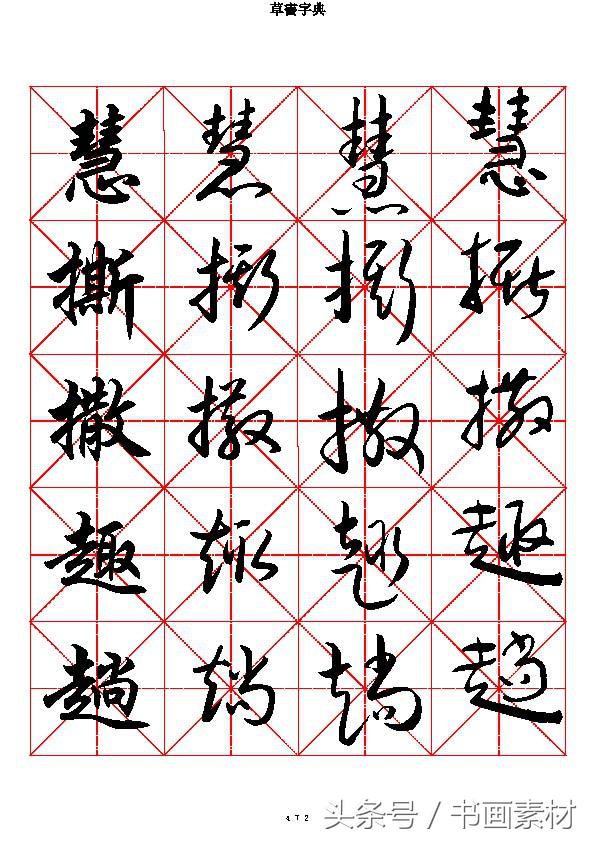 草書字典
慧慧慧慧
撕撕撕撕
撒撒撒撒
趣趣趣趣
趟趟趟趟
472
头条号／书画素材